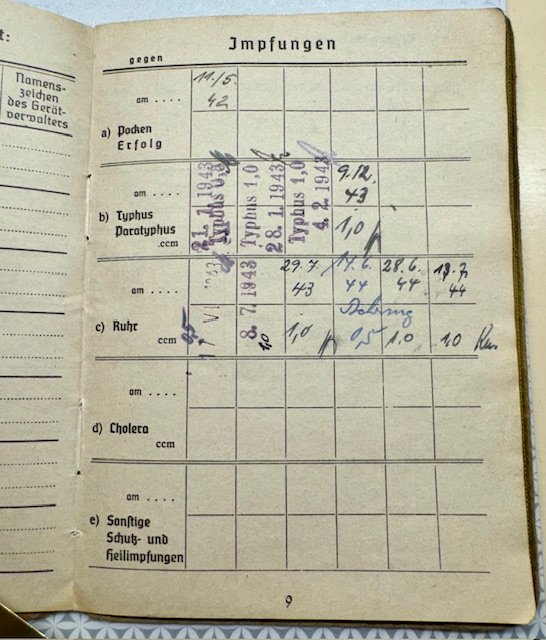 t:
Namens-
zeichen
des Gerät-
verwalters
Impfungen
gegen
am ....
11./5.
42
a) Pocken
Erfolg
am ....
21. 1. 1943
Typhus
Typhus 1,0
28. 1. 1943
Typhus 1,0
4. 2. 1943
9.12.
43
b) Typhus
Paratyphus
.ccm
1,0
am ....
8. 7. 1943
29.7.
43
14.6.
44
28.6.
44
13.7.
44
c) Ruhr
ccm
0,5
1,0
1,0
0,5
1,0
1,0
am ....
d) Cholera
ccm
am ....
e) Sonstige
Schutz- und
Heilimpfungen
9